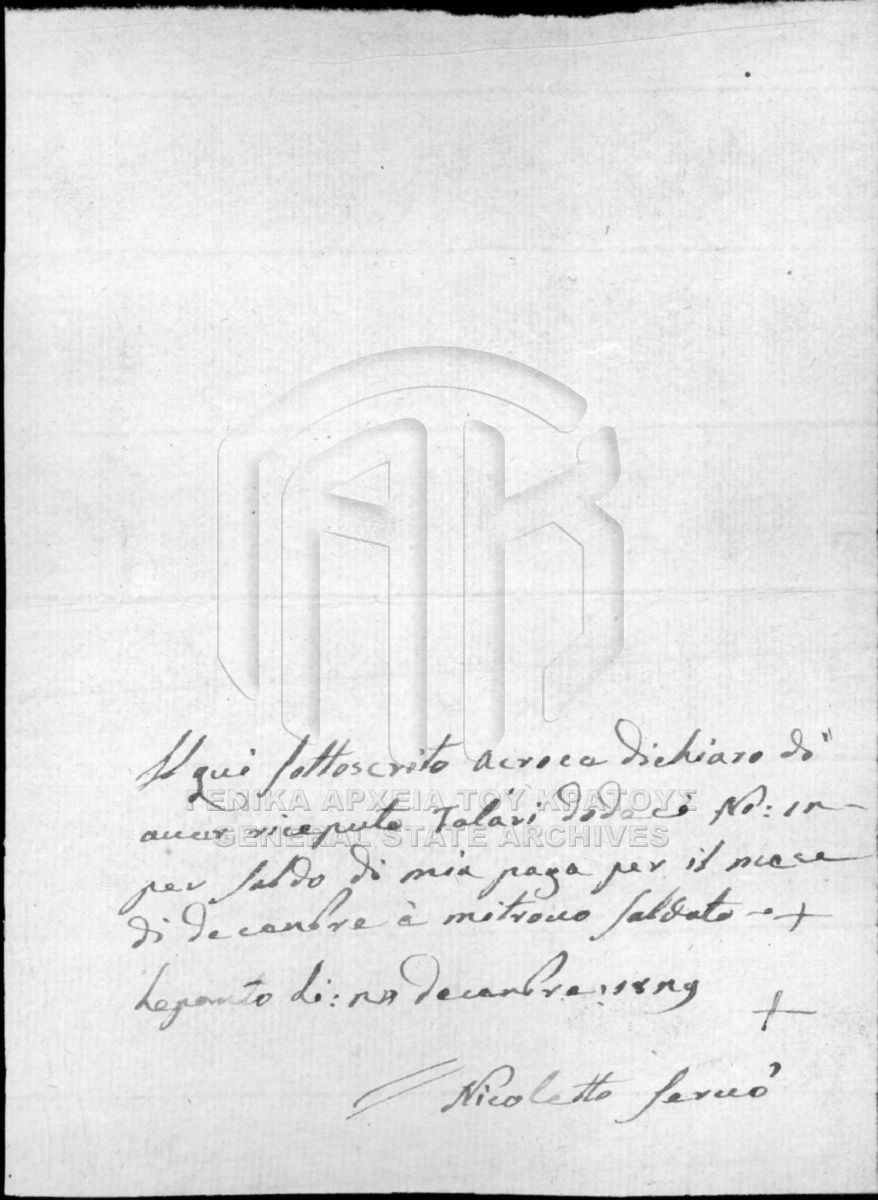 Il qui sottoscrito acroca dichiaro di"
auer riceputo Talari dodece No: 12
per saldo di mia paga per il mece
di decenbre à mitrouo saldato
Lepanto li: 27 decenbre: 1829
Nicoletto
ΓΕΝΙΚΑ ΑΡΧΕΙΑ ΤΟΥ ΚΡΑΤΟΥΣ
GENERAL STATE ARCHIVES